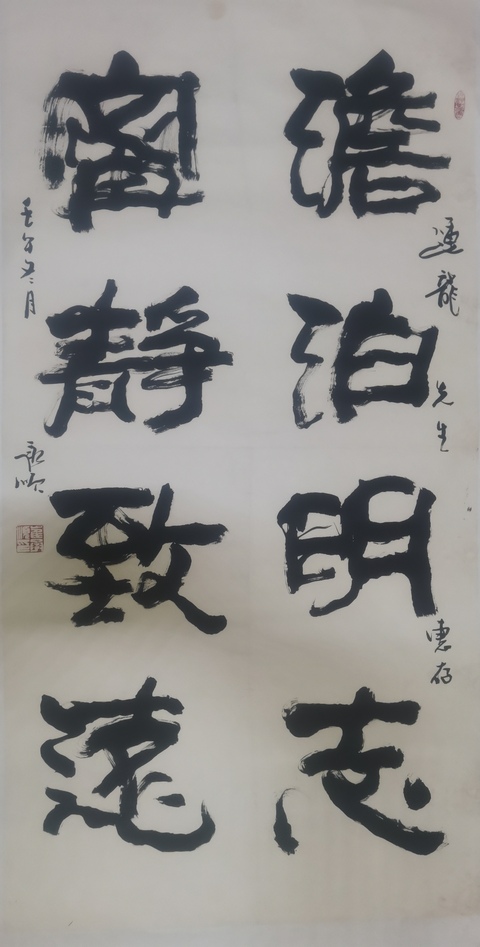 澹泊明志
寧靜致遠
龍
先生
惠存
壬午冬月